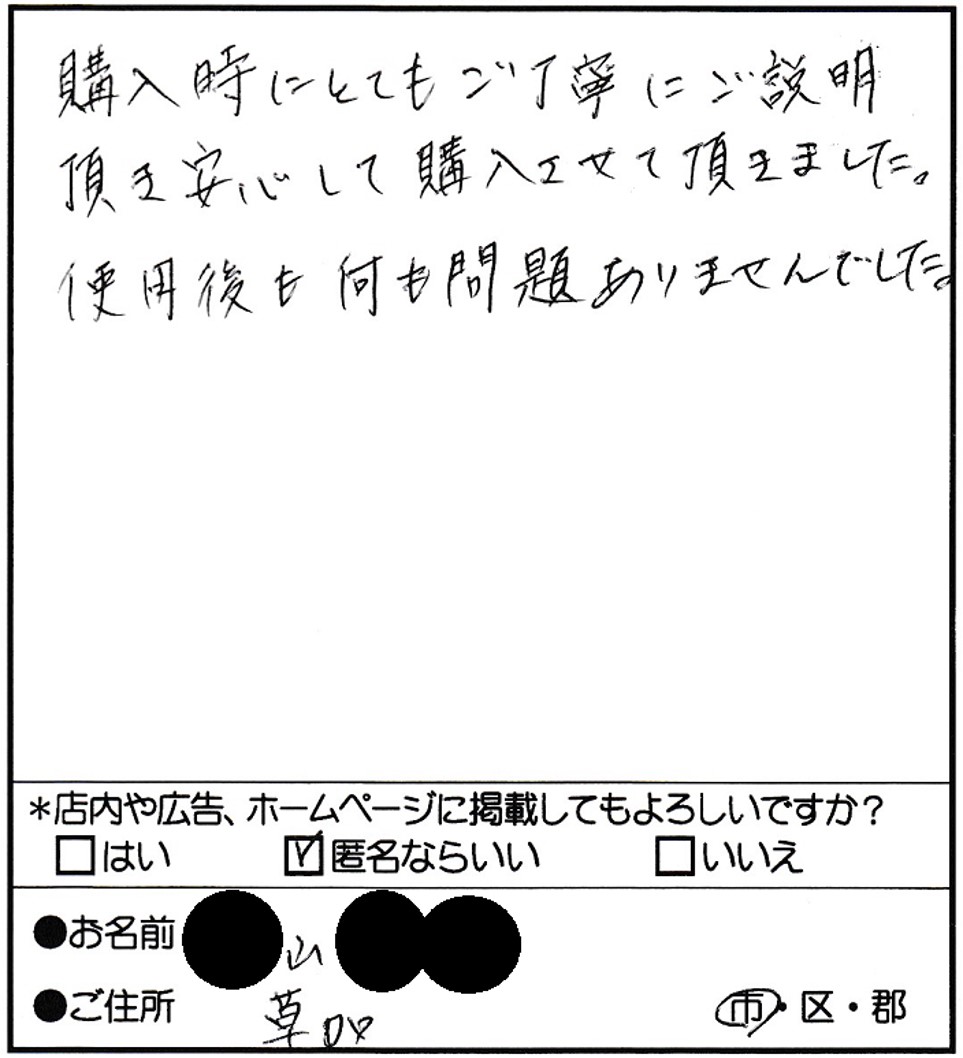 購入時にとてもご丁寧にご説明
頂き安心して購入させて頂きました。
使用後も何も問題ありませんでした。
*店内や広告、ホームページに掲載してもよろしいですか?
□はい ☑匿名ならいい □いいえ
●お名前 山
●ご住所 草加 市・区・郡